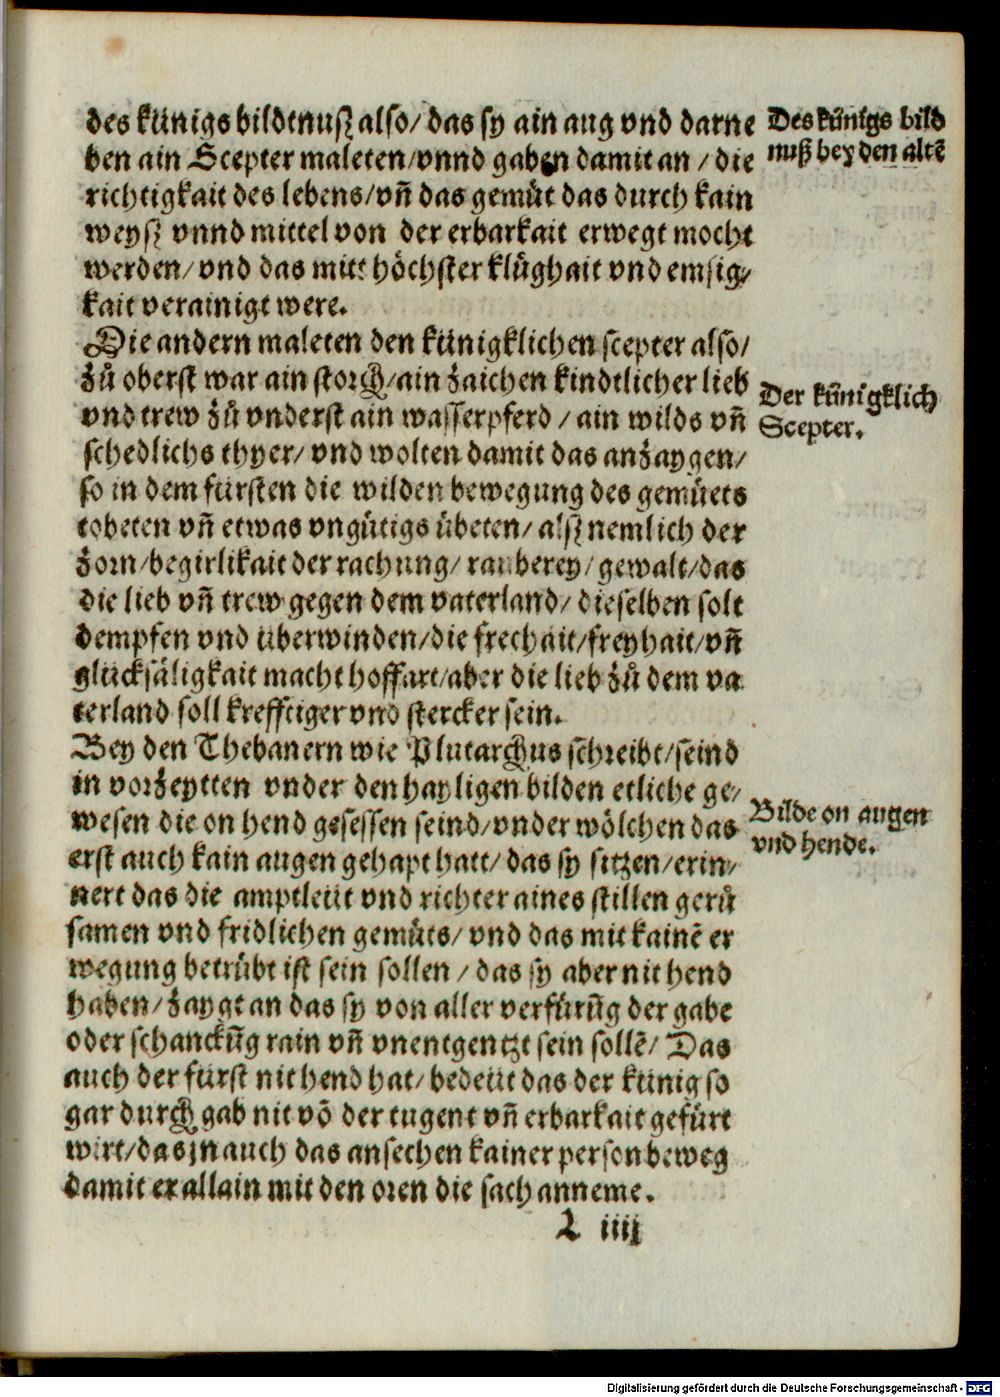 des künigs bildtnuſz alſo/ das ſy ain aug vnd darne
ben ain Scepter maleten/ vnnd gaben damit an / die
richtigkait des lebens/ vn̄ das gemuͤt das durch kain
weyſz vnnd mittel von der erbarkait erwegt mocht
werden/ vnd das mitt hoͤchſter kluͦghait vnd emſig⸗
kait verainigt were.
Des künigs bild
nuß bey den altē
Die andern maleten den künigklichen ſcepter alſo/
zuͦ oberſt war ain ſtorch/ ain zaichen kindtlicher lieb
vnd trew zuͦ vnderſt ain waſſerpferd / ain wilds vn̄
ſchedlichs thyer/ vnd wolten damit das anzaygen/
ſo in dem fürſten die wilden bewegung des gemuͤets
tobeten vn̄ etwas vnguͤtigs uͤbeten/ alſz nemlich der
zorn/ begirlikait der rachung/ rauberey/ gewalt/ das
die lieb vn̄ trew gegen dem vaterland/ dieſelben ſolt
dempfen vnd überwinden/ die frechait/ freyhait/ vn̄
glückſäligkait macht hoffart/ aber die lieb zuͦ dem va
terland ſoll krefftiger vnd ſtercker ſein.
Der künigklich
Scepter.
Bey den Thebanern wie Plutarchus ſchreibt/ ſeind
in vorzeytten vnder den hayligen bilden etliche ge⸗
weſen die on hend geſeſſen ſeind/ vnder woͤlchen das
erſt auch kain augen gehapt hatt/ das ſy ſitzen/ erin⸗
nert das die amptleüt vnd richter aines ſtillen geruͤ
ſamen vnd fridlichen gemuͤts/ vnd das mit kainē er
wegung betruͤbt iſt ſein ſollen / das ſy aber nit hend
haben/ zaygt an das ſy von aller verfuͤrūg der gabe
oder ſchanckūg rain vn̄ vnentgentzt ſein ſollē/ Das
auch der fürſt nit hend hat/ bedeüt das der künig ſo
gar durch gab nit vō der tugent vn̄ erbarkait gefuͤrt
wirt/ das jn auch das anſechen kainer perſon beweg
damit er allain mit den oren die ſach anneme.
Bilde on augen
vnd hende.
L iiij
Digitalisierung gefördert durch die Deutsche Forschungsgemeinschaft - DFG